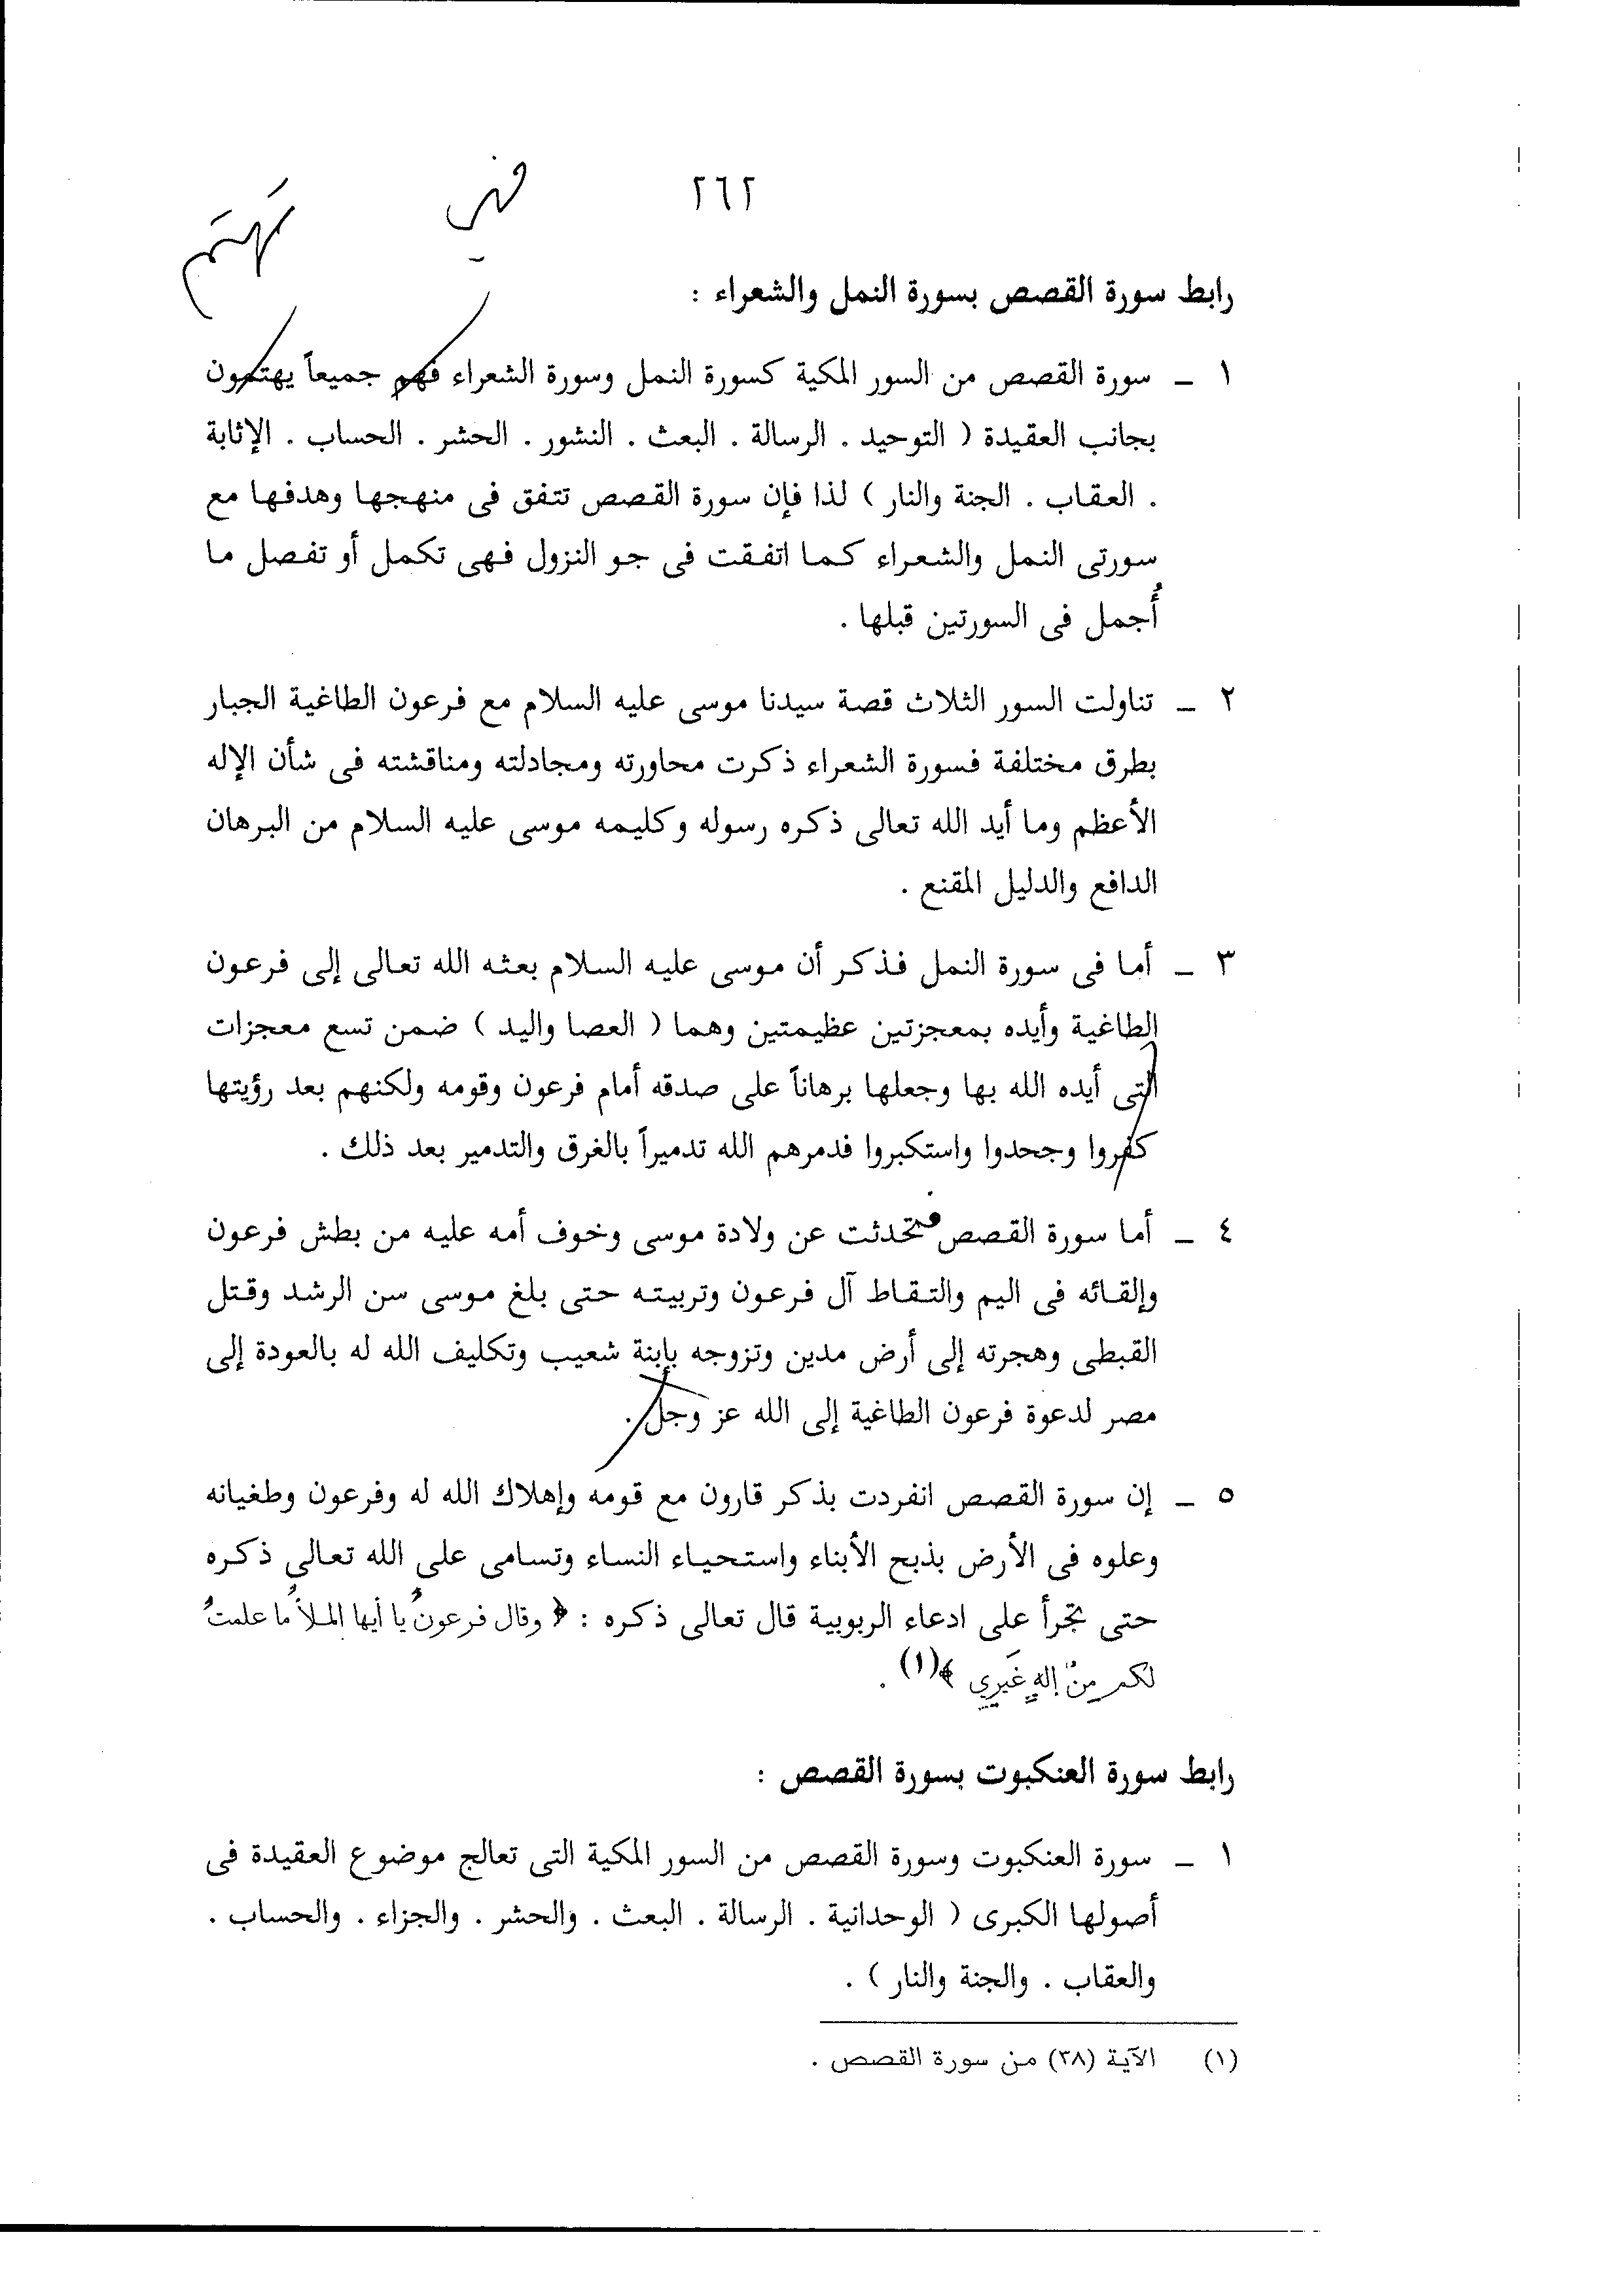 ٢٦٢
فهي
تهتم
رابط سورة القصص بسورة النمل والشعراء :
١ ـ سورة القصص من السور المكية كسورة النمل وسورة الشعراء فهم جميعاً يهتمون
بجانب العقيدة ( التوحيد . الرسالة . البعث . النشور . الحشر . الحساب . الإثابة
. العقاب . الجنة والنار ) لذا فإن سورة القصص تتفق فى منهجها وهدفها مع
سورتى النمل والشعراء كما اتفقت فى جو النزول فهى تكمل أو تفصل ما
أُجمل فى السورتين قبلها .
٢ ـ تناولت السور الثلاث قصة سيدنا موسى عليه السلام مع فرعون الطاغية الجبار
بطرق مختلفة فسورة الشعراء ذكرت محاورته ومجادلته ومناقشته فى شأن الإله
الأعظم وما أيد الله تعالى ذكره رسوله وكليمه موسى عليه السلام من البرهان
الدافع والدليل المقنع .
٣ ـ أما فى سورة النمل فذكر أن موسى عليه السلام بعثه الله تعالى إلى فرعون
الطاغية وأيده بمعجزتين عظيمتين وهما ( العصا واليد ) ضمن تسع معجزات
التى أيده الله بها وجعلها برهاناً على صدقه أمام فرعون وقومه ولكنهم بعد رؤيتها
كفروا وجحدوا واستكبروا فدمرهم الله تدميراً بالغرق والتدمير بعد ذلك .
٤ ـ أما سورة القصص فتحدثت عن ولادة موسى وخوف أمه عليه من بطش فرعون
وإلقائه فى اليم والتقاط آل فرعون وتربيته حتى بلغ موسى سن الرشد وقتل
القبطى وهجرته إلى أرض مدين وتزوجه بإبنة شعيب وتكليف الله له بالعودة إلى
مصر لدعوة فرعون الطاغية إلى الله عز وجل .
٥ ـ إن سورة القصص انفردت بذكر قارون مع قومه وإهلاك الله له وفرعون وطغيانه
وعلوه فى الأرض بذبح الأبناء واستحياء النساء وتسامى على الله تعالى ذكره
حتى تجرأ على ادعاء الربوبية قال تعالى ذكره : ﴿ وقال فرعونُ يا أيها الملأُ ما علمتُ
لكم مِنْ إلهٍ غَيرِي ﴾(١) .
رابط سورة العنكبوت بسورة القصص :
١ ـ سورة العنكبوت وسورة القصص من السور المكية التى تعالج موضوع العقيدة فى
أصولها الكبرى ( الوحدانية . الرسالة . البعث . والحشر . والجزاء . والحساب .
والعقاب . والجنة والنار ) .
(١) الآية (٣٨) من سورة القصص .